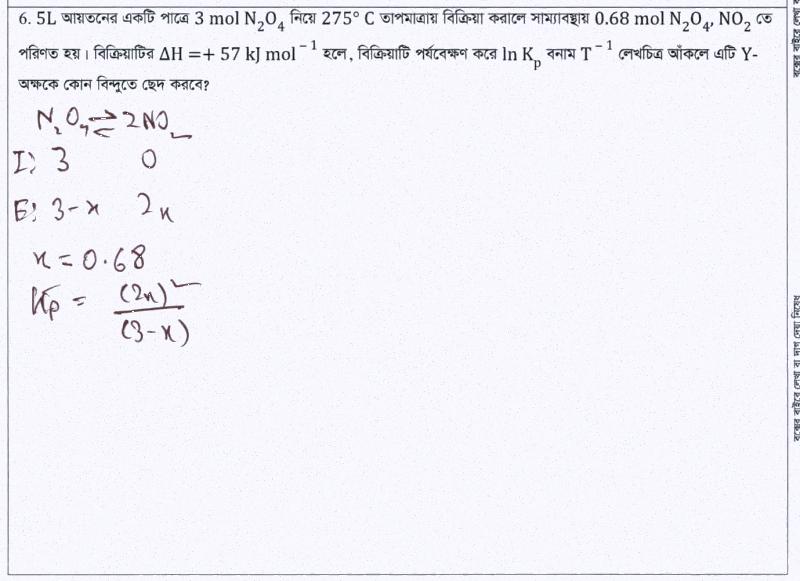 6. 5L আয়তনের একটি পাত্রে 3 mol N₂O₄ নিয়ে 275° C তাপমাত্রায় বিক্রিয়া করালে সাম্যাবস্থায় 0.68 mol N₂O₄, NO₂ তে
পরিণত হয়। বিক্রিয়াটির ΔH =+ 57 kJ mol⁻¹ হলে, বিক্রিয়াটি পর্যবেক্ষণ করে ln Kₚ বনাম T⁻¹ লেখচিত্র আঁকলে এটি Y-
অক্ষকে কোন বিন্দুতে ছেদ করবে?
N₂O₄ ⇌ 2NO₂
I: 3 0
E: 3-x 2x
x = 0.68
Kp = (2x)² / (3-x)
বক্সের বাইরে লেখা বা দাগ দেয়া নিষেধ